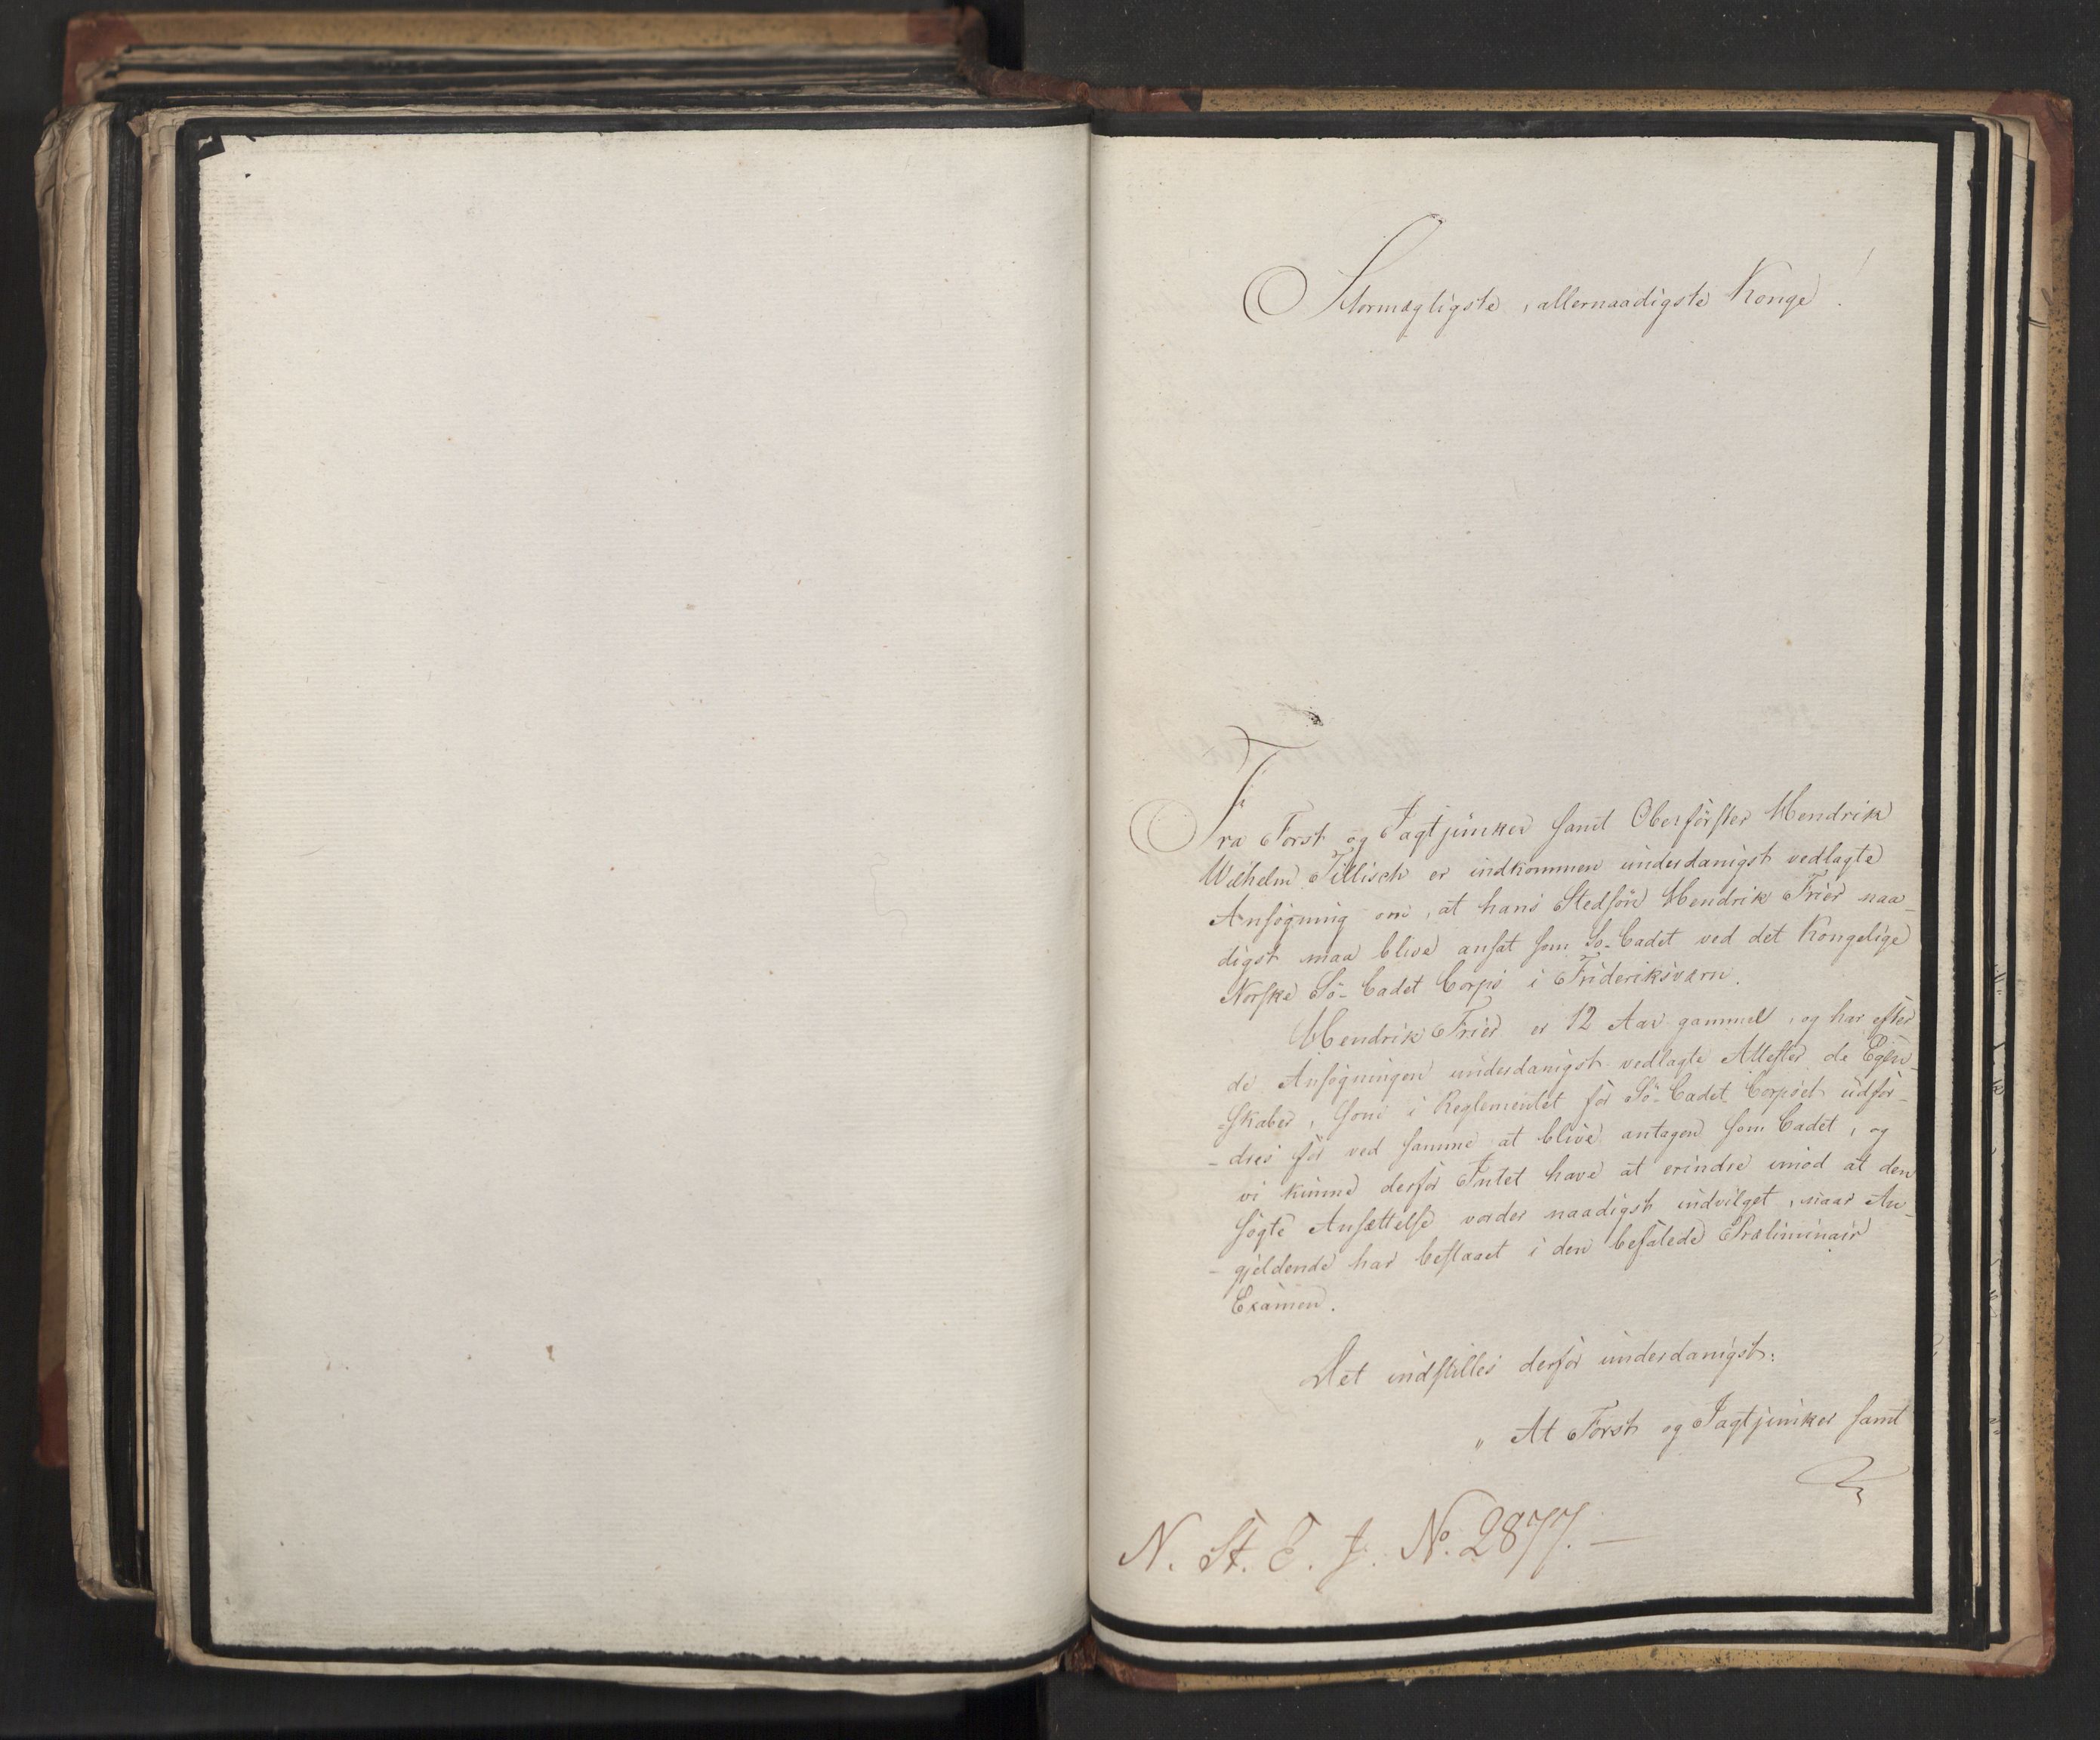 Stormægtigste, allernaadigste Konge!
Fra Forst og Jagtjunker samt Oberförster Hendrik
Wilhelm Tillisch er indkommen underdanigst vedlagte
Ansögning om, at hans Stedsön Hendrik Frier naa-
digst maa blive ansat som Sö-Cadet ved det Kongelige
Norske Sö-Cadet Corps i Frideriksværn.
Hendrik Frier er 12 Aar gammel, og har efter
de Ansögningen underdanigst vedlagte Attester de Egen-
-skaber, som i Reglementet for Sö-Cadet-Corpset udfor-
-dres for ved samme at blive antagen som Cadet, og
vi kunne derfor Intet have at erindre imod at den
sögte Ansættelse vorder naadigst indvilget, naar An-
-gjeldende har bestaaet i den befalede Præliminair
Examen.
Det indstilles derfor underdanigst:
„ At Forst og Jagtjunker samt
N. St. E. J. No. 2877. —